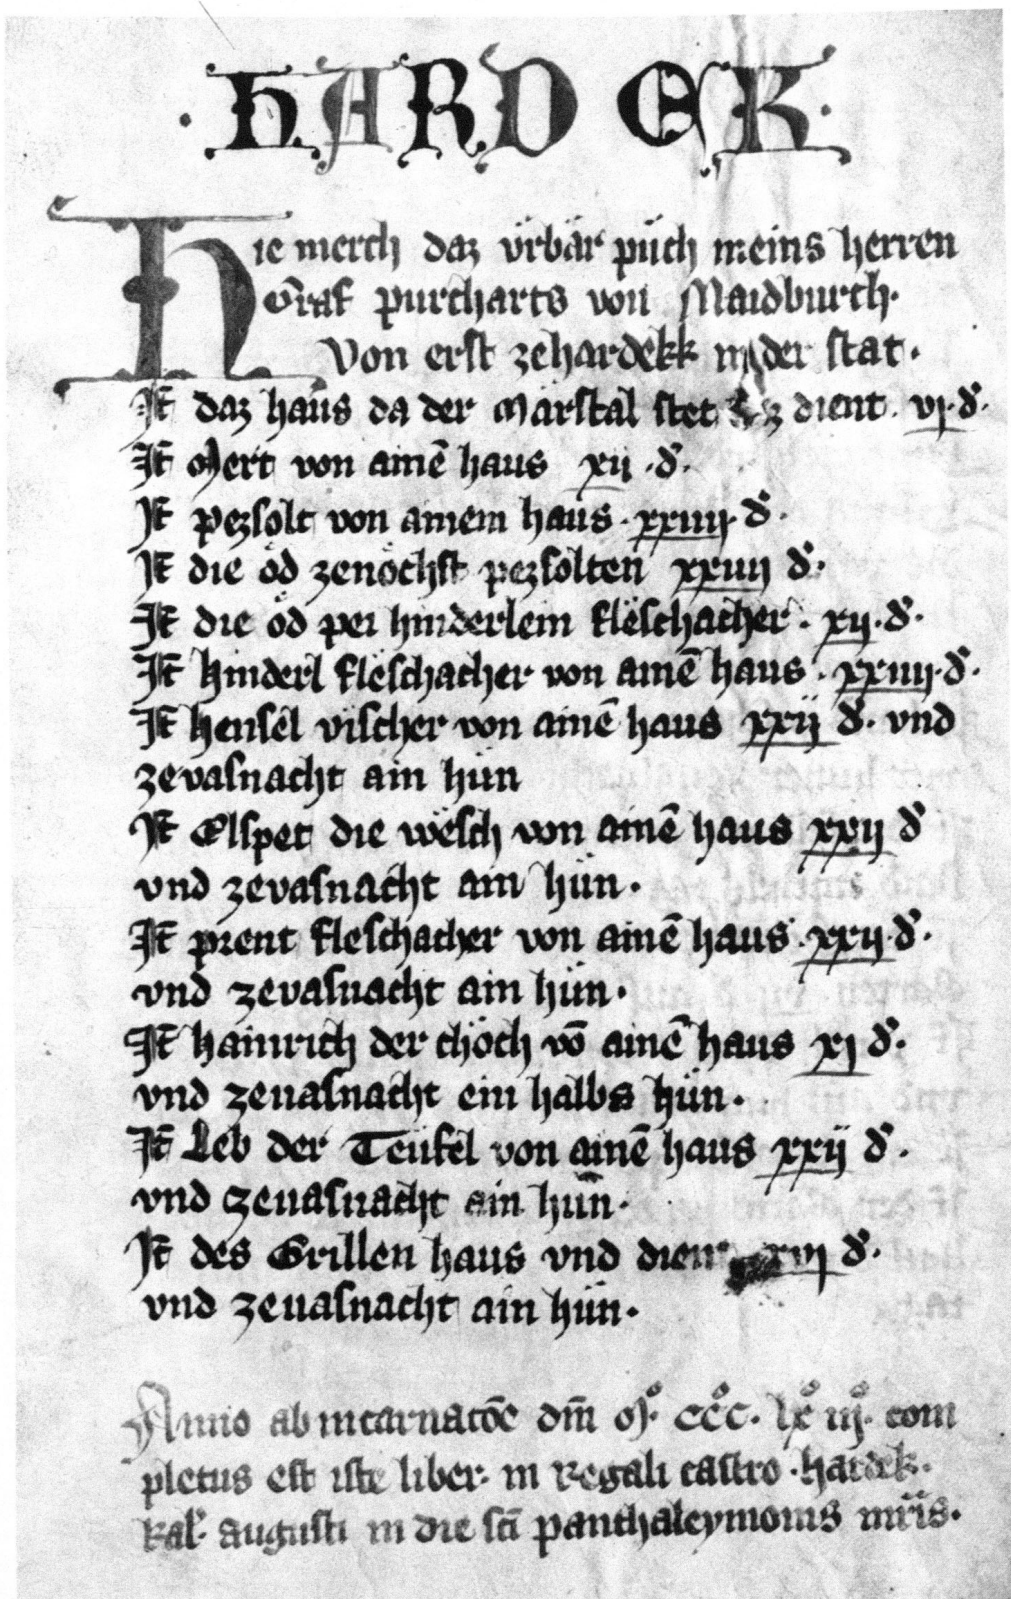 · HARD EK ·
Hie merch daz ürbär püch meins herren
Graf purcharts von Maidburch·
Von erst zehardekk in der stat·
Jt̄ daz haüs da der Marstal stet dient · vj· ₰·
Jt̄ Mert von ainē haus xij · ₰·
Jt̄ pezsolt von ainem haus · xxiiij· ₰·
Jt̄ die öd zenöchst pezsolten xxiiij ₰·
Jt̄ die öd pei hinderlein fleschacher · xij· ₰·
Jt̄ hinderl fleschacher von ainē haus · xxiiij· ₰·
Jt̄ hensel vischer von ainē haus xxij ₰· vnd
zevasnacht ain hün
Jt̄ Elspet die wesch von ainē haus xxij ₰
vnd zevasnacht ain hün·
Jt̄ prent fleschacher von ainē haus · xxij· ₰·
vnd zevasnacht ain hün·
Jt̄ hainrich der chöch vō ainē haus xj ₰·
vnd zeuasnacht ein halbs hün·
Jt̄ Leb der Teufel von ainē haus xxij ₰·
vnd zeuasnacht ain hün·
Jt̄ des Grillen haus vnd ₰·
vnd zeuasnacht ain hün·
Anno ab incarnatōe dm̄ Mº· CCCº· lxº iijº· com
pletus est iste liber· in regali castro · hardek·
kal· augusti in die scī panthaleymonis mr̄is·